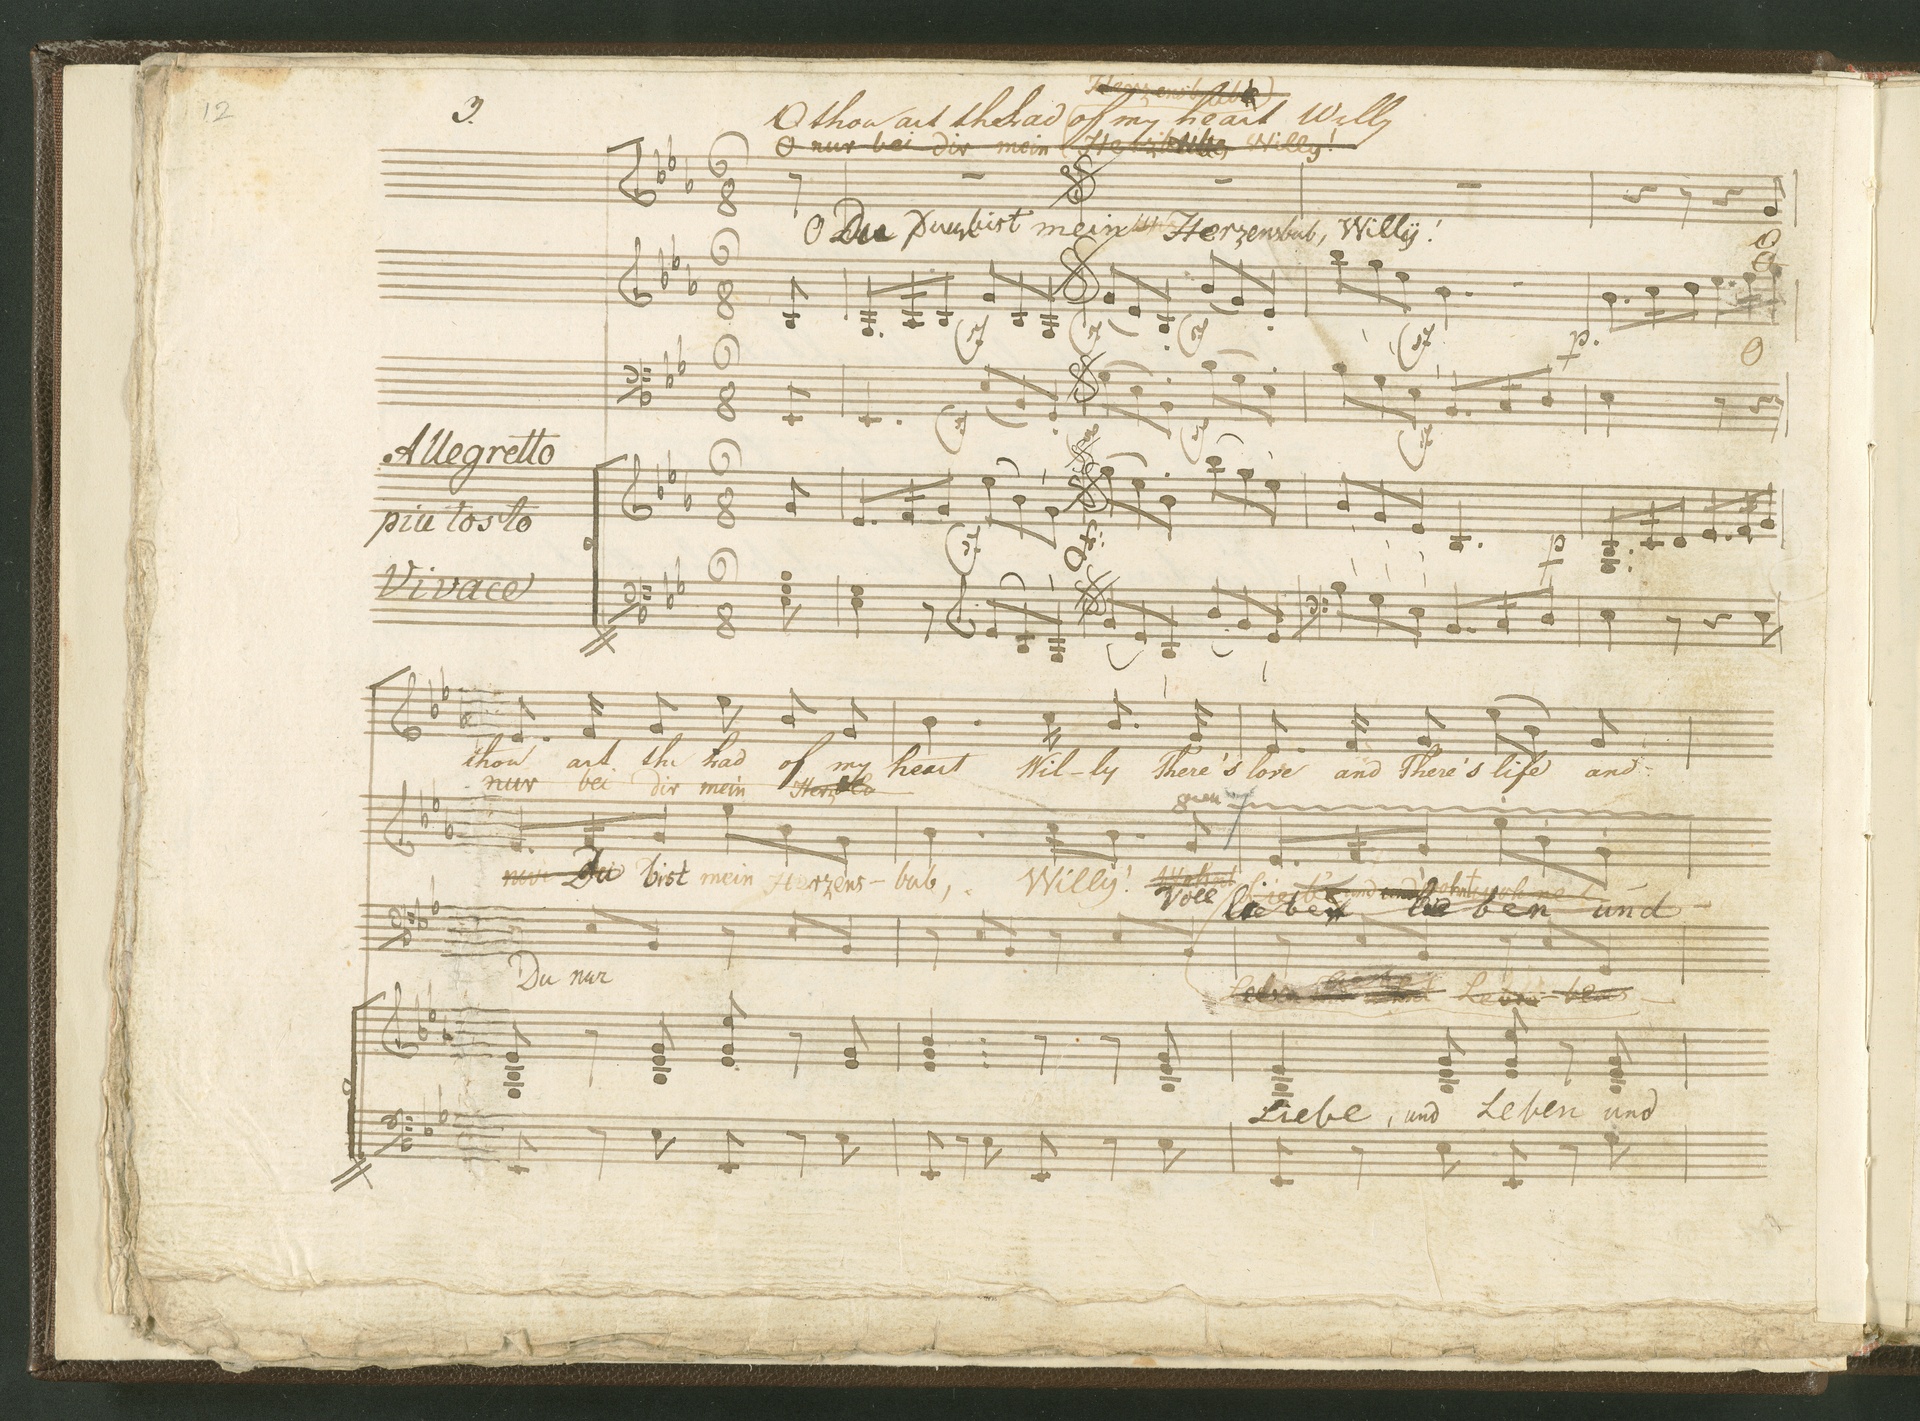 12
3.
Herzensbub
O thou art the Lad of my heart Willy
O nur bei dir mein Willy!
O Du bist mein Herzensbub, Willÿ!
O
p.
O
Allegretto
piu tosto
Vivace
p
thou art the Lad of my heart Wil-ly There's love and There's life and
nur bei dir mein
nur Du bist mein Herzens-bub, Willy! Voll
lieben lie ben und
Du nur
Liebe, und Leben und